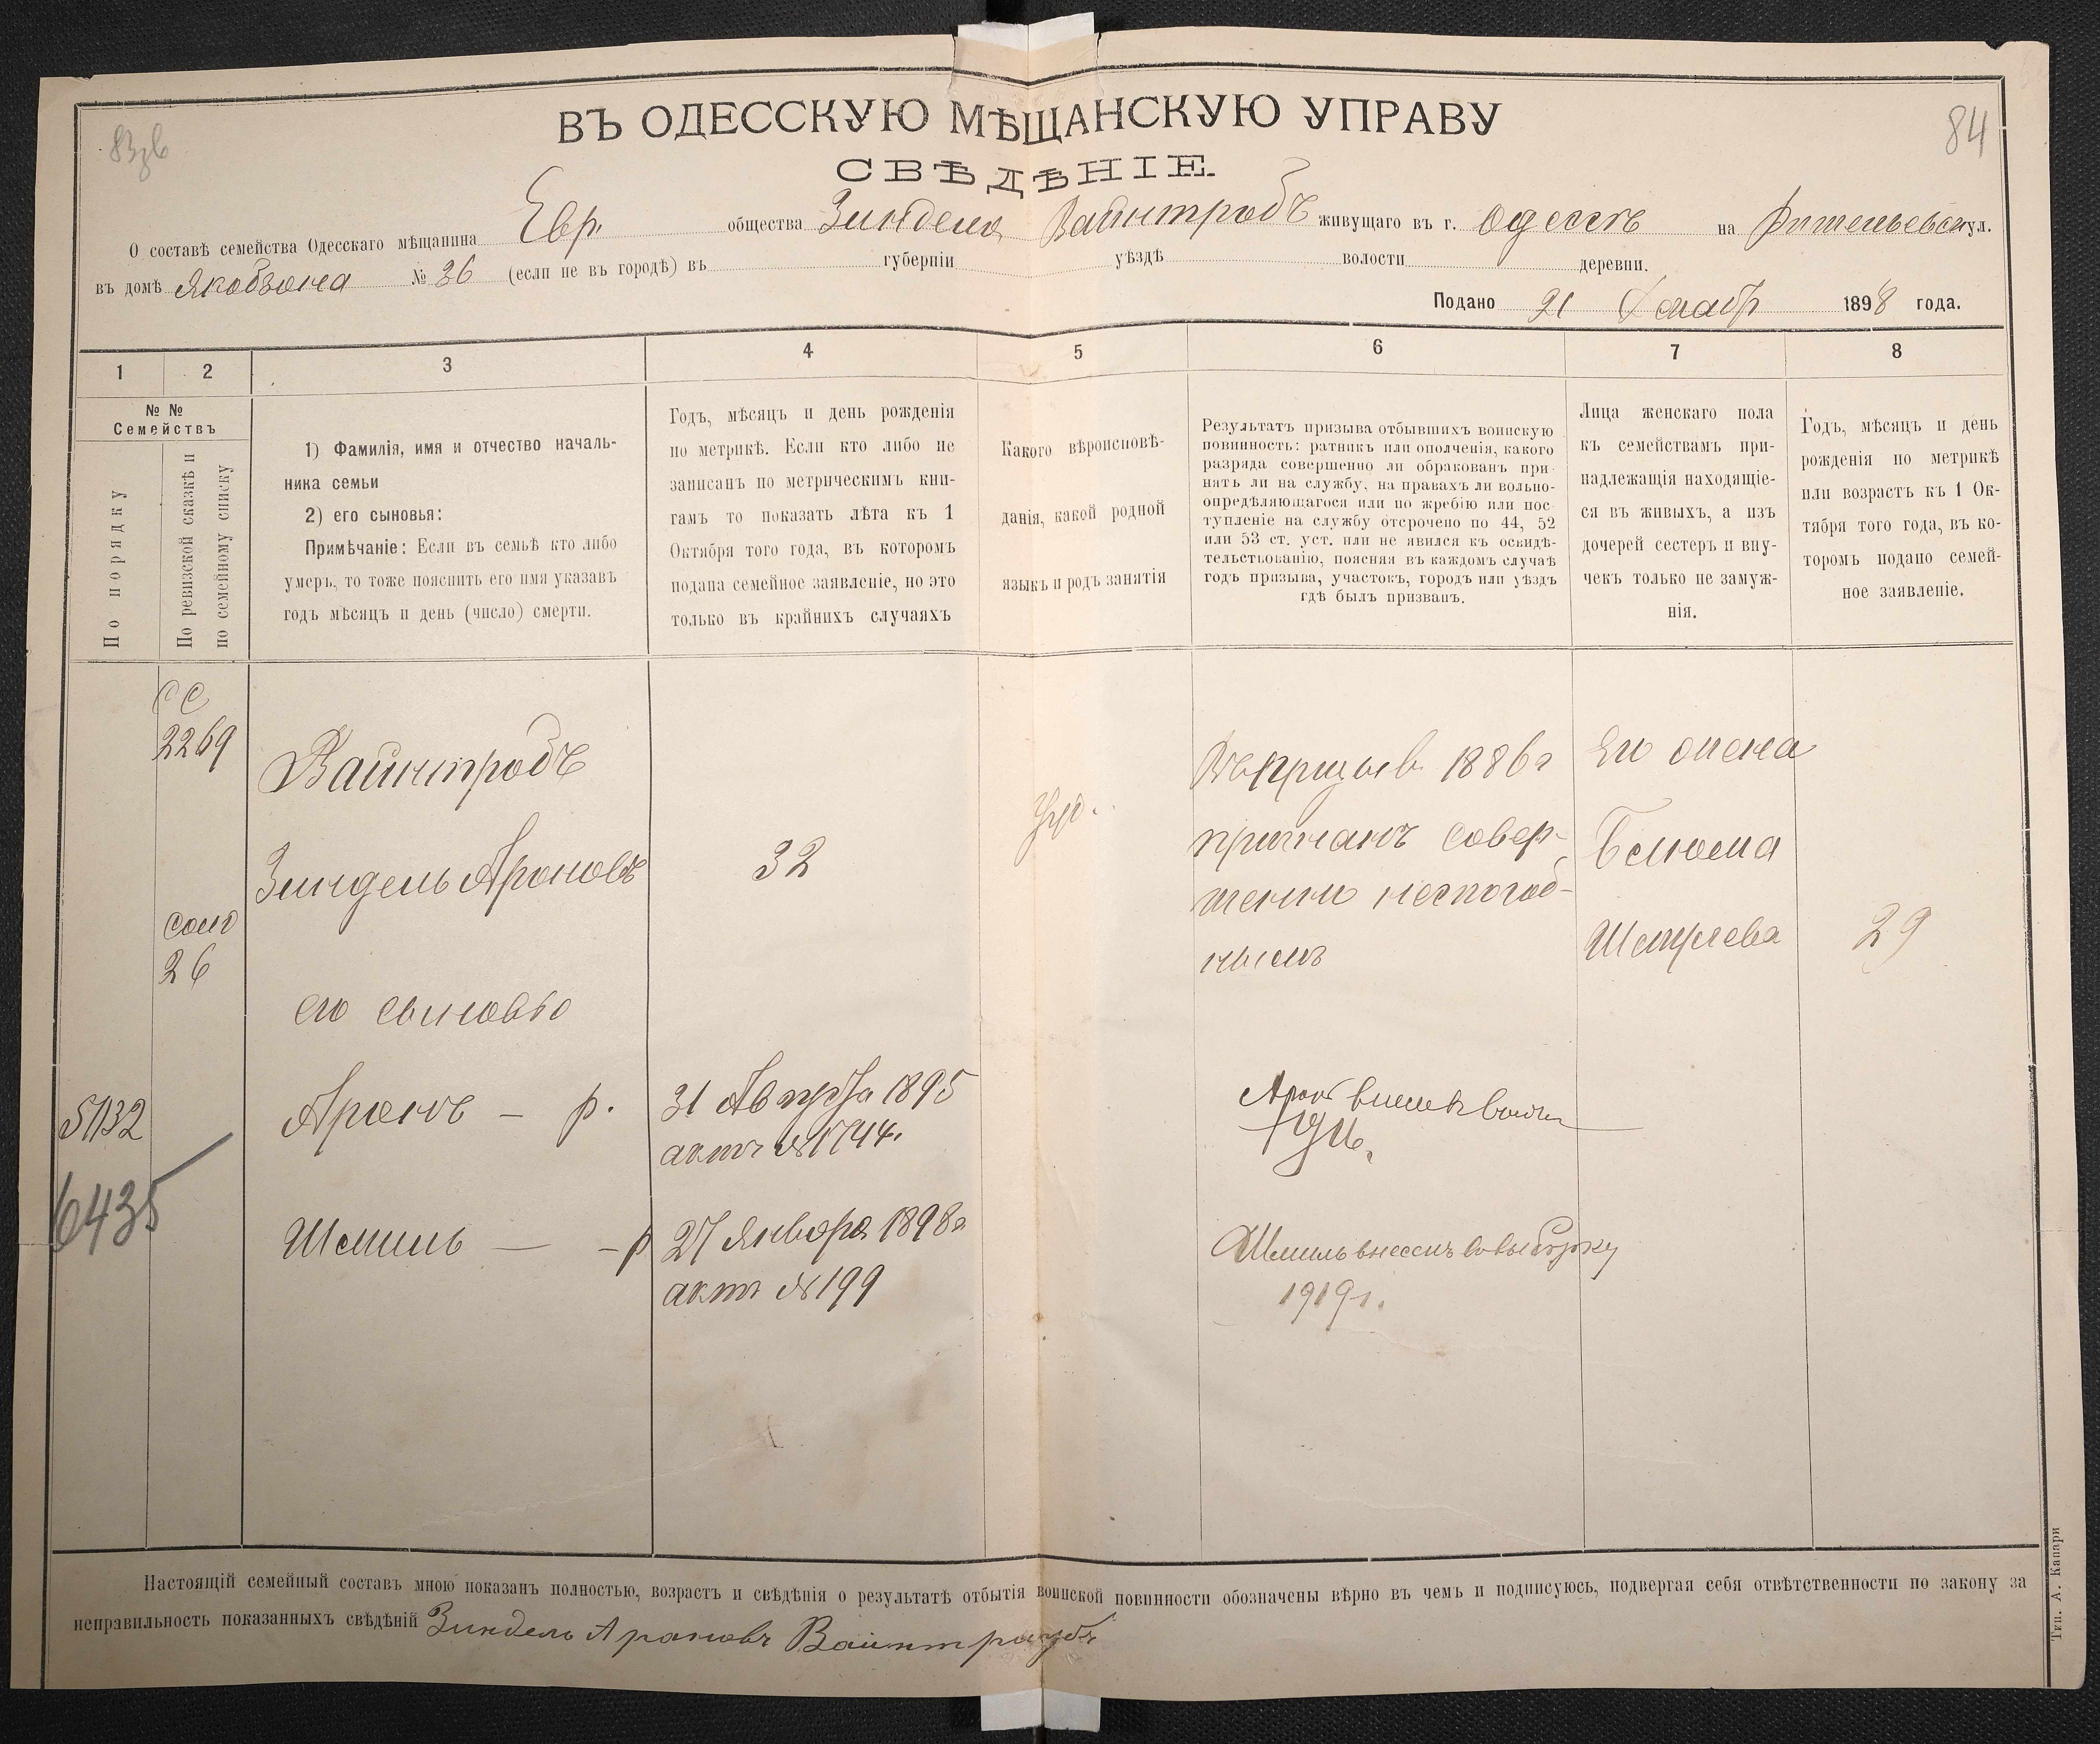 84
ВЪ ОДЕССКУЮ МѢЩАНСКУЮ УПРАВУ
СВѢДѢНІЕ.
О составѣ семейства Одесскаго мѣщанина Евр. общества Зинделя Вайнтробъ живущаго въ г. Одессѣ на Ришельевск ул.
въ домѣ Якобзона № 36 (если не въ городѣ) въ губерніи уѣздѣ волости деревни.
Подано 21 1898 года.
1 2 3 4 5 6 7 8
№ №
Семействъ
По порядку
По ревизской сказкѣ и
по семейному списку
1) Фамилія, имя и отчество началь-
ника семьи
2) его сыновья:
Примѣчаніе: Если въ семьѣ кто либо
умеръ, то тоже пояснить его имя указавъ
годъ мѣсяцъ и день (число) смерти.
Годъ, мѣсяцъ и день рожденія
по метрикѣ. Если кто либо не
записанъ по метрическимъ кни-
гамъ то показать лѣта къ 1
Октября того года, въ которомъ
подана семейное заявленіе, но это
только въ крайнихъ случаяхъ
Какого вѣроисповѣ-
данія, какой родной
языкъ и родъ занятія
Результатъ призыва отбывшихъ воинскую
повинность: ратникъ или ополченія, какого
разряда совершенно ли обракованъ при-
нятъ ли на службу, на правахъ ли вольно-
опредѣляющагося или по жребію или пос-
тупленіе на службу отсрочено по 44, 52
или 53 ст. уст. или не явился къ освидѣ-
тельствованію, поясняя въ каждомъ случаѣ
годъ призыва, участокъ, городъ или уѣздъ
гдѣ былъ призванъ.
Лица женскаго пола
къ семействамъ при-
надлежащія находящіе-
ся въ живыхъ, а изъ
дочерей сестеръ и вну-
чекъ только не замуж-
нія.
Годъ, мѣсяцъ и день
рожденія по метрикѣ
или возрастъ къ 1 Ок-
тября того года, въ ко-
торомъ подано семей-
ное заявленіе.
СС
2269
Вайнтробъ
Зиндель Ароновъ
32
Въ призыв 1886 г
признанъ совер-
шенно неспособ-
нымъ
Его жена
Шмулева
29
26
его сыновья
5132
Аронъ — р.
31 Августа 1895
актъ № 1744.
Аронъ
6435
Шмиль — - р
27 Января 1898 г
актъ № 199
Шмиль внесенъ въ выборку
1919 г.
Настоящій семейный составъ мною показанъ полностью, возрастъ и свѣдѣнія о результатѣ отбытія воинской повинности обозначены вѣрно въ чемъ и подписуюсь, подвергая себя отвѣтственности по закону за
неправильность показанныхъ свѣдѣній Зиндель Ароновъ Вайнтраубъ
Тип. А. Капари